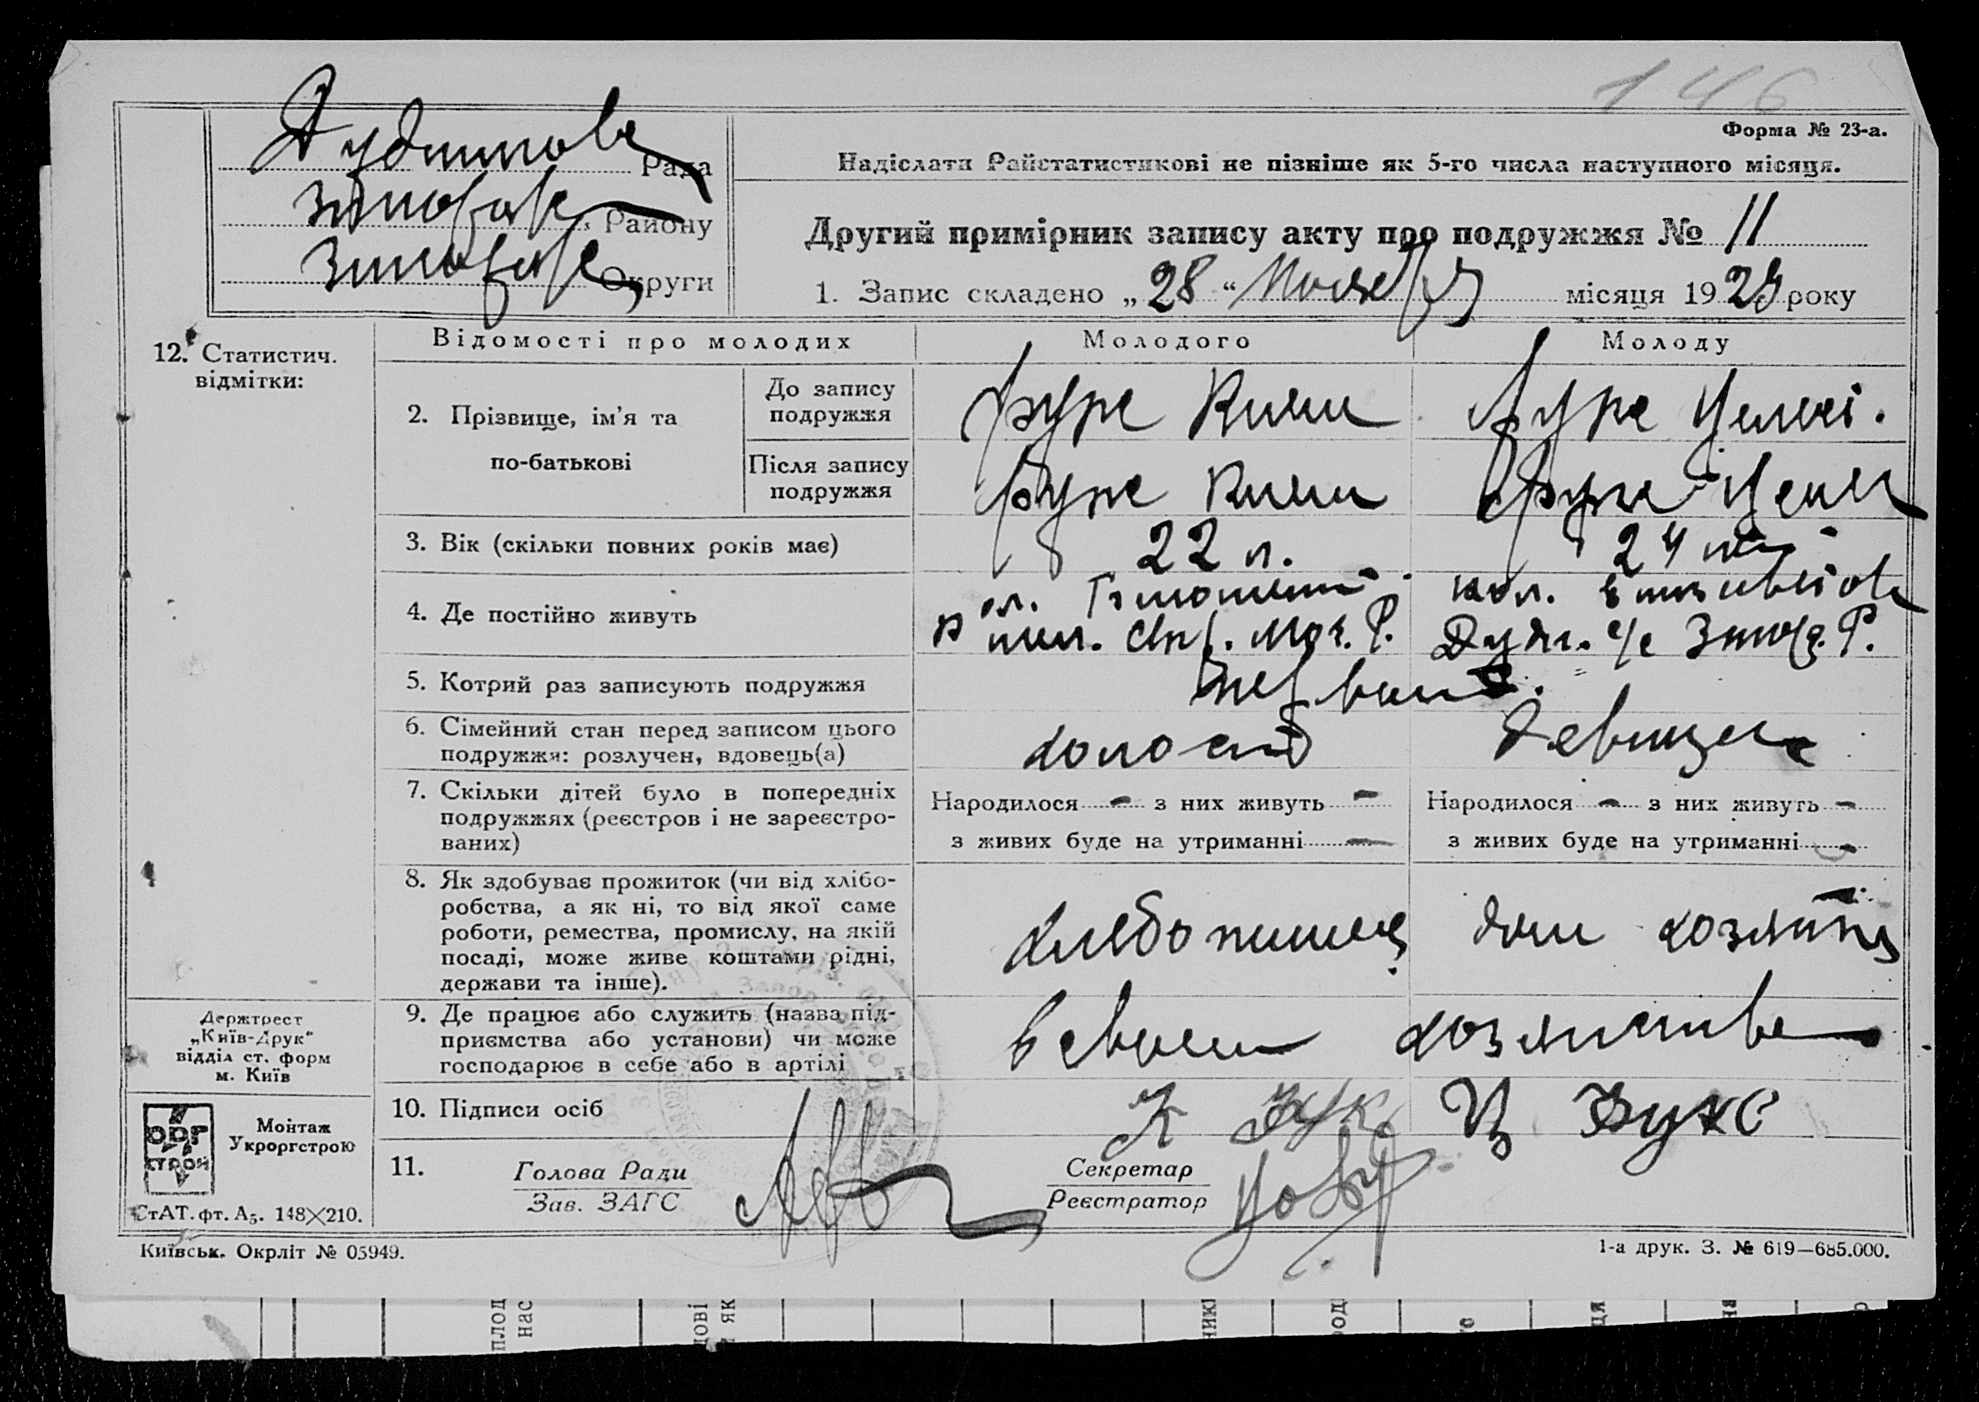 146
Форма № 23-а.
Рада
Надіслати Райстатистикові не пізніше як 5-го числа наступного місяця.
Району
Другий примірник запису акту про подружжя № 11
Округи
1. Запис складено „28“ Ноября місяця 1929 року
12. Статистич. відмітки:
Відомості про молодих
Молодого
Молоду
2. Прізвище, ім’я та по-батькові
До запису подружжя
Після запису подружжя
3. Вік (скільки повних років має)
22 л.
24
4. Де постійно живуть
кол.
5. Котрий раз записують подружжя
первый
6. Сімейний стан перед записом цього
подружжя: розлучен, вдовець(а)
холост
девица
7. Скільки дітей було в попередніх
подружжях (реєстров і не зареєстро-
ваних)
Народилося - з них живуть -
з живих буде на утриманні -
Народилося - з них живуть -
з живих буде на утриманні -
8. Як здобуває прожиток (чи від хлібо-
робства, а як ні, то від якої саме
роботи, ремества, промислу, на якій
посаді, може живе коштами рідні,
держави та інше).
хлебопашец
дом хозяйка
9. Де працює або служить (назва під-
приємства або установи) чи може
господарює в себе або в артілі
в своем хозяистве
10. Підписи осіб
К Фукс
Ц Фукс
11.
Голова Ради
Зав. ЗАГС
Секретар
Реєстратор
Держтрест
„Київ-Друк“
відділ ст. форм
м. Київ
ОРГ
СТРОЙ
Монтаж
Укроргстрою
СтАТ. фт. А₅. 148×210.
Київськ. Окрліт № 05949.
1-а друк. З. № 619—685.000.